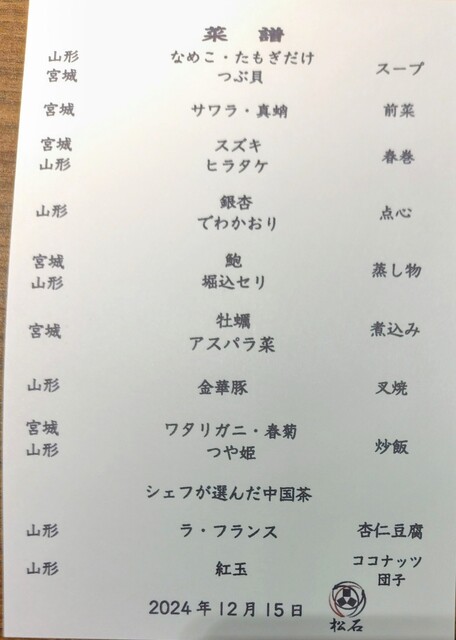 菜譜
山形 なめこ・たもぎだけ
宮城 つぶ貝 スープ
宮城 サワラ・真蛸 前菜
宮城 スズキ
山形 ヒラタケ 春巻
山形 銀杏 点心
でわかおり
宮城 鮑
山形 堀込セリ 蒸し物
宮城 牡蠣 煮込み
アスパラ菜
山形 金華豚 叉焼
宮城 ワタリガニ・春菊
山形 つや姫 炒飯
シェフが選んだ中国茶
山形 ラ・フランス 杏仁豆腐
山形 紅玉 ココナッツ
団子
2024年12月15日
松石